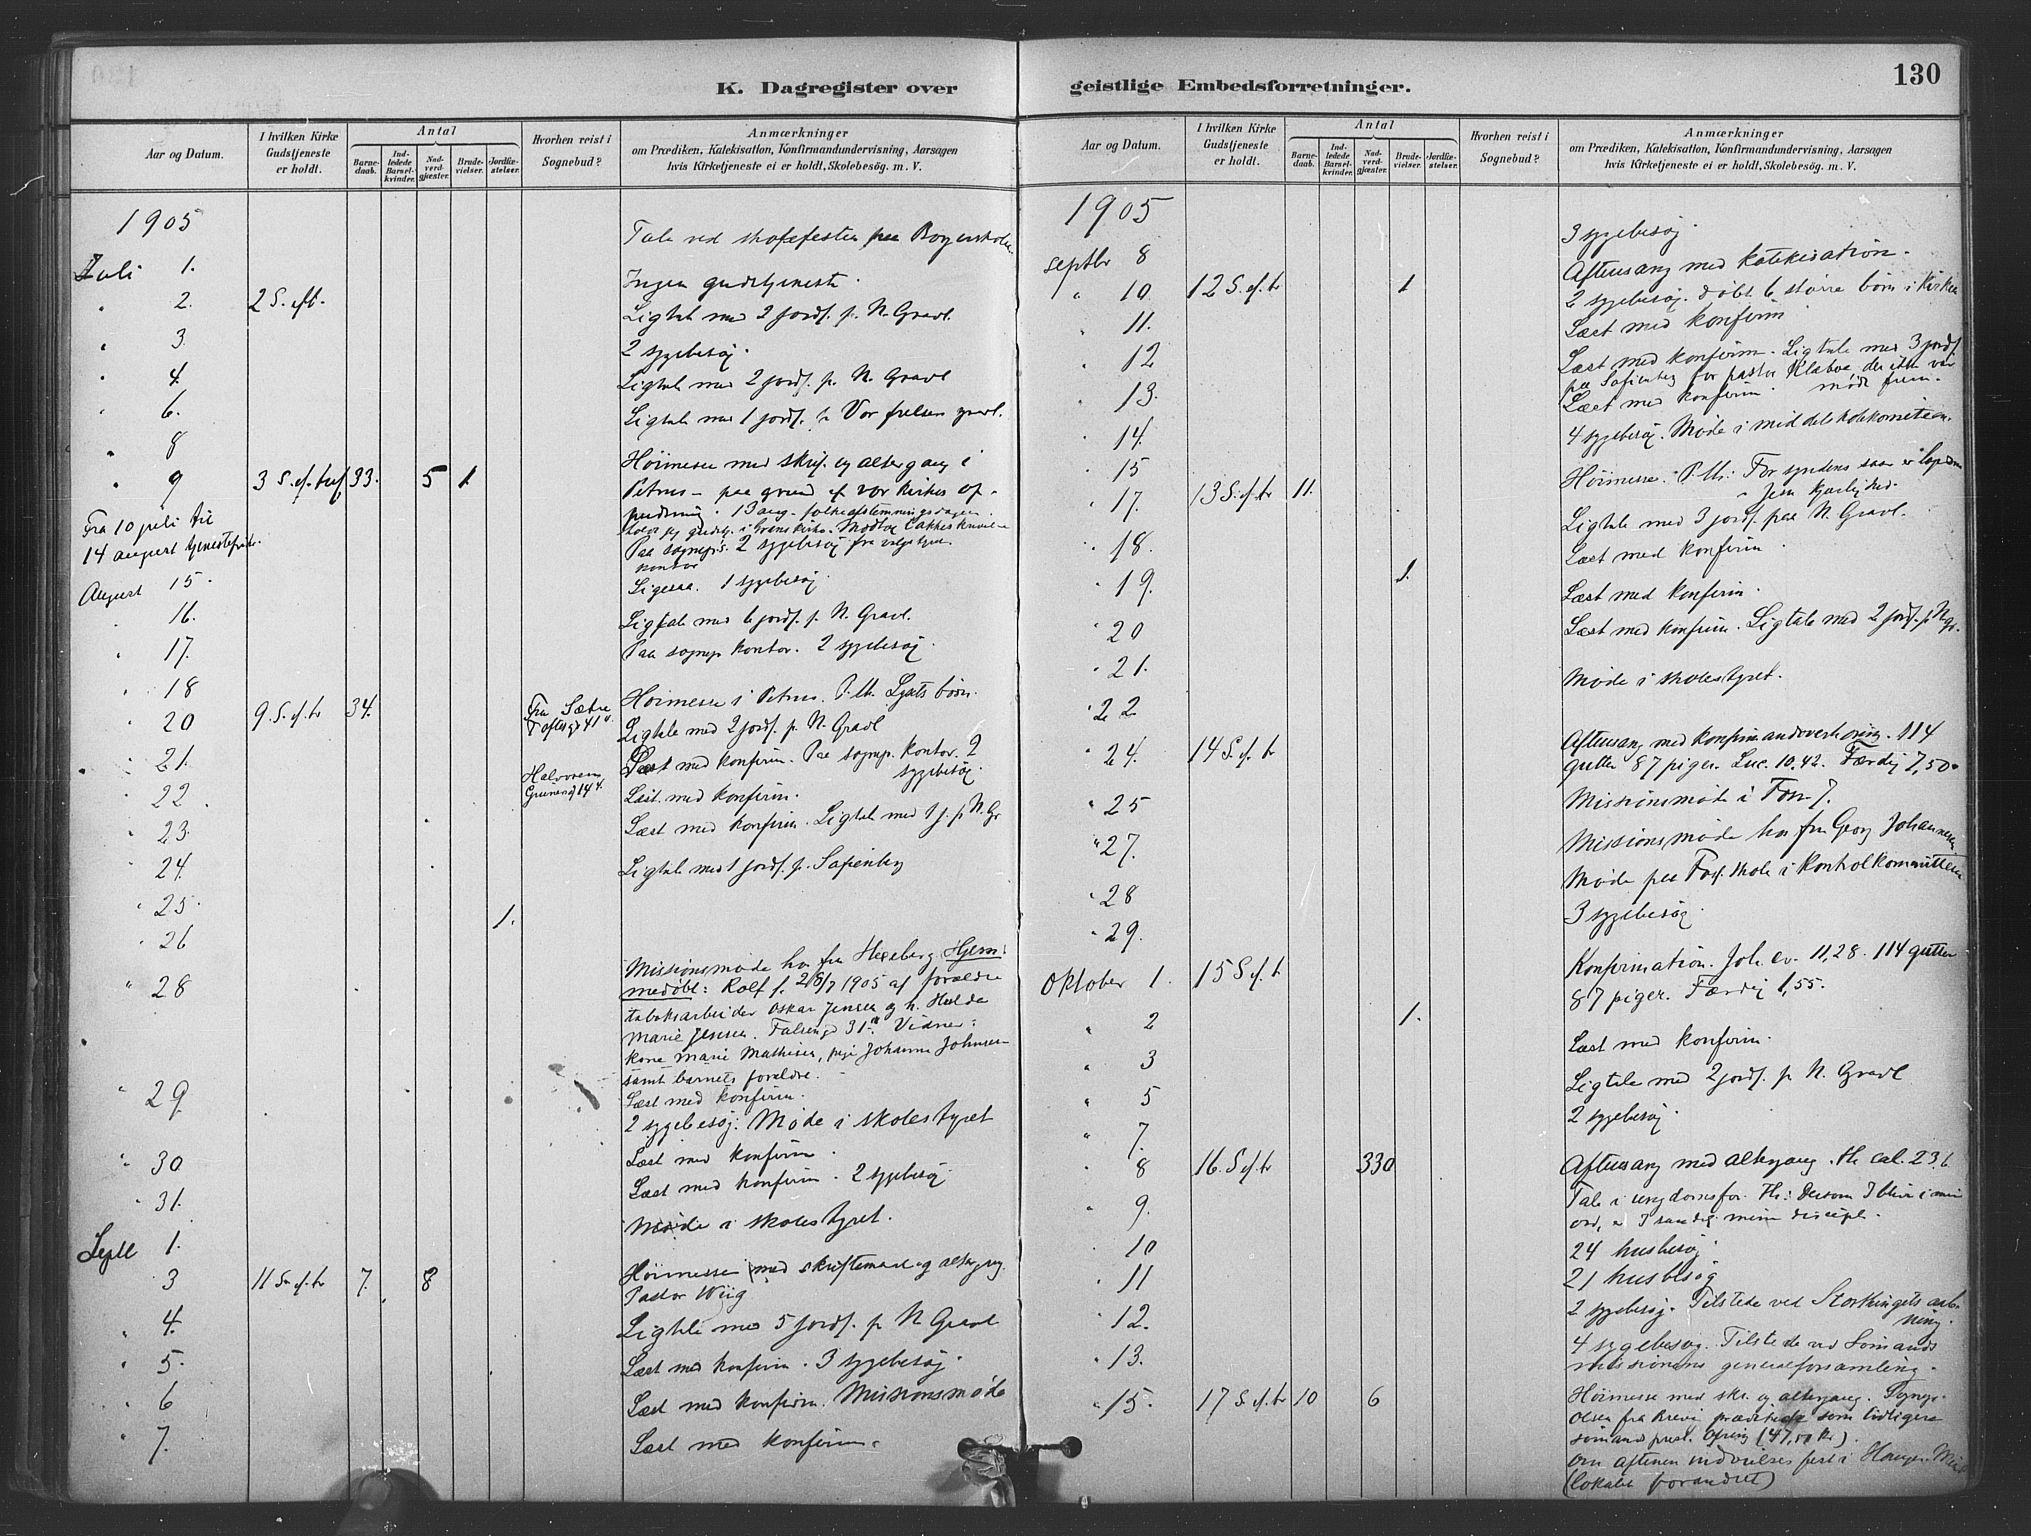 130
K. Dagregister over geistlige Embedsforretninger.
Aar og Datum.
I hvilken Kirke Gudstjeneste er holdt.
Antal
Barnedaab.
Indledede Barselkvinder.
Nadverdgjæster.
Brudevielser.
Jordfæstelser.
Hvorhen reist i Sognebud?
Anmærkninger
om Prædiken, Katekisation, Konfirmandundervisning, Aarsagen
hvis Kirketjeneste ei er holdt, Skolebesøg. m. V.
1905
Tale ved skolefesten paa
Juli 1.
Ingen gudstjeneste.
" 2. 2 S. e. tr.
Ligtale med 2 jordf. p. N. Gravl.
" 3.
2 sygebesøg.
" 4.
Ligtale med 2 jordf. p. N. Gravl
" 6.
Ligtale med 1 jordf. p. Vor frelsers gravl.
" 8
" 9 3 S. e. tref. 33. 5 1.
Høimesse med skrif. og altergang i
Petrus – paa grund af vor kirkes op-
pudsning. 13 aug. folkeafstemningsdagen
Fra 10 juli til
14 august tjenestefri.
Paa sognep.s 2 sygebesøg
kontor
August 15.
Ligesaa. 1 sygebesøg.
" 16.
Ligtale med 6 jordf. p. N. Gravl.
" 17.
Paa sognep. kontor. 2 sygebesøg.
" 18
" 20 9. S. e. tr 34.
Fra Sætre
Toftesgd 41
Høimesse i Petrus. P. th. Lysets børn.
Ligtale med 2 jordf. p. N. Gravl
" 21.
Halvorsen
Grünersgd 14
Læst med konfirm. Paa sognep. kontor. 2
sygebesøg.
" 22.
Læst med konfirm.
" 23.
Læst med konfirm. Ligtale med 1 j. p. N. Gr
" 24.
Ligtale med 1 jordf. p. Sofienberg
" 25. 1.
" 26
" 28
Missionsmøde hos fru Hexeberg. Hjem-
medøbt: Rolf f. 1905 af forældre
tobaksarbeider Oskar Jensen og h. Hulda
Marie Jensen. Falsensgd 31. Vidner:
Kone Marie Mathisen, pige Johanna Johnsen
samt barnets forældre.
" 29.
Læst med konfirm.
2 sygebesøg. Møde i skolestyret
" 30
Læst med konfirm.
" 31.
Læst med konfirm. 2 sygebesøg.
Septb 1.
Møde i skolestyret.
3 11 S. e. tr 7. 8
Høimesse med skriftemaal og altergang.
Pastor Wiig
" 4.
Ligtale med 5 jordf. p. N Gravl
" 5.
Læst med konfirm. 3 sygebesøg.
" 6
Læst med konfirm. Missionsmøde
" 7.
Læst med konfirm.
Aar og Datum.
I hvilken Kirke Gudstjeneste er holdt.
Antal
Barnedaab.
Indledede Barselkvinder.
Nadverdgjæster.
Brudevielser.
Jordfæstelser.
Hvorhen reist i Sognebud?
Anmærkninger
om Prædiken, Katekisation, Konfirmandundervisning, Aarsagen
hvis Kirketjeneste ei er holdt, Skolebesøg. m. V.
1905
Septbr 8
3 sygebesøg.
" 10. 12 S. e. tr 1
Aftensang med katekisation.
" 11.
2 sygebesøg. døbt 6 større børn i kirken
" 12
Læst med konfirm
" 13.
Læst med konfirm. Ligtale med 3 jordf.
paa Sofienberg for pastor Klaboe der ikke var
mødt frem.
" 14.
Læst med konfirm
" 15
4 sygebesøg. Møde i middelskolekomiteen.
" 17. 13 S. e. tr 11.
Høimesse. P. th: For syndens saar er
Jesu kjærlighed.
" 18.
Ligtale med 3 jordf. paa N. Gravl.
" 19. 1.
Læst med konfirm.
" 20
Læst med konfirm.
" 21.
Læst med konfirm. Ligtale med 2 jordf. p N. gr.
" 22
Møde i skolestyret.
" 24. 14 S. e. tr
Aftensang med konfirmandoverhøring. 114
gutter 87 piger. Luc. 10,42. Færdig 7,50
" 25
Missionsmøde i
" 27.
Missionsmøde hos fru Georg Johannesen
" 28
Møde paa Fos. skole i kontrolkommitteen
" 29.
3 sygebesøg.
Oktober 1. 15 S. e. tr
Konfirmation. Joh. ev. 11,28. 114 gutter
87 piger. Færdig 1,55.
" 2 1.
" 3
Læst med konfirm.
" 5
Ligtale med 2 jordf. p N. Gravl
" 7.
2 sygebesøg.
" 8 16. S e. tr 330
Aftensang med altergang. th. cal. 23,6
" 9.
Tale i ungdomsfor. th: Dersom I bliver i min
ord, er I sandelig mine disciple.
" 10
24 husbesøg.
" 11
21 husbesøg
" 12.
2 sygebesøg. Tilstede ved Storthingets aab-
ning.
" 13.
4 sygebesøg. Tilstede ved Sømands
missionens generalforsamling.
" 15. 17 S. e. tr 10 6
Høimesse med skr. og altergang.
Olsen fra Brevik prædikede som tidligere
sømandsprest. Ofring (47,00 Kr).
Om aftenen indvielsesfest i
(lokalet forandret)